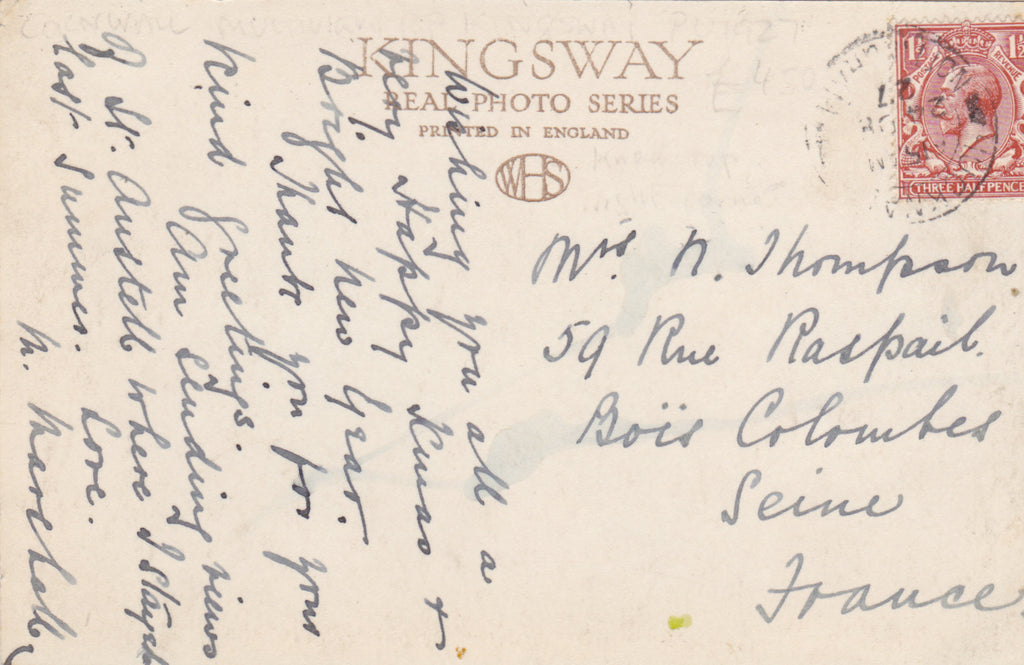 KINGSWAY
REAL PHOTO SERIES
PRINTED IN ENGLAND
WHS
POSTAGE REVENUE
1½ 1½
THREE HALFPENCE
27
Wishing you all a
very Happy Xmas +
Bright New Year.
Thank you for your
kind greetings.
Am sending views
of St. Austell where I stayed
last Summer. Love.
M. Marshall
Mrs N. Thompson
59 Rue Raspail.
Boïs Colombes
Seine
France